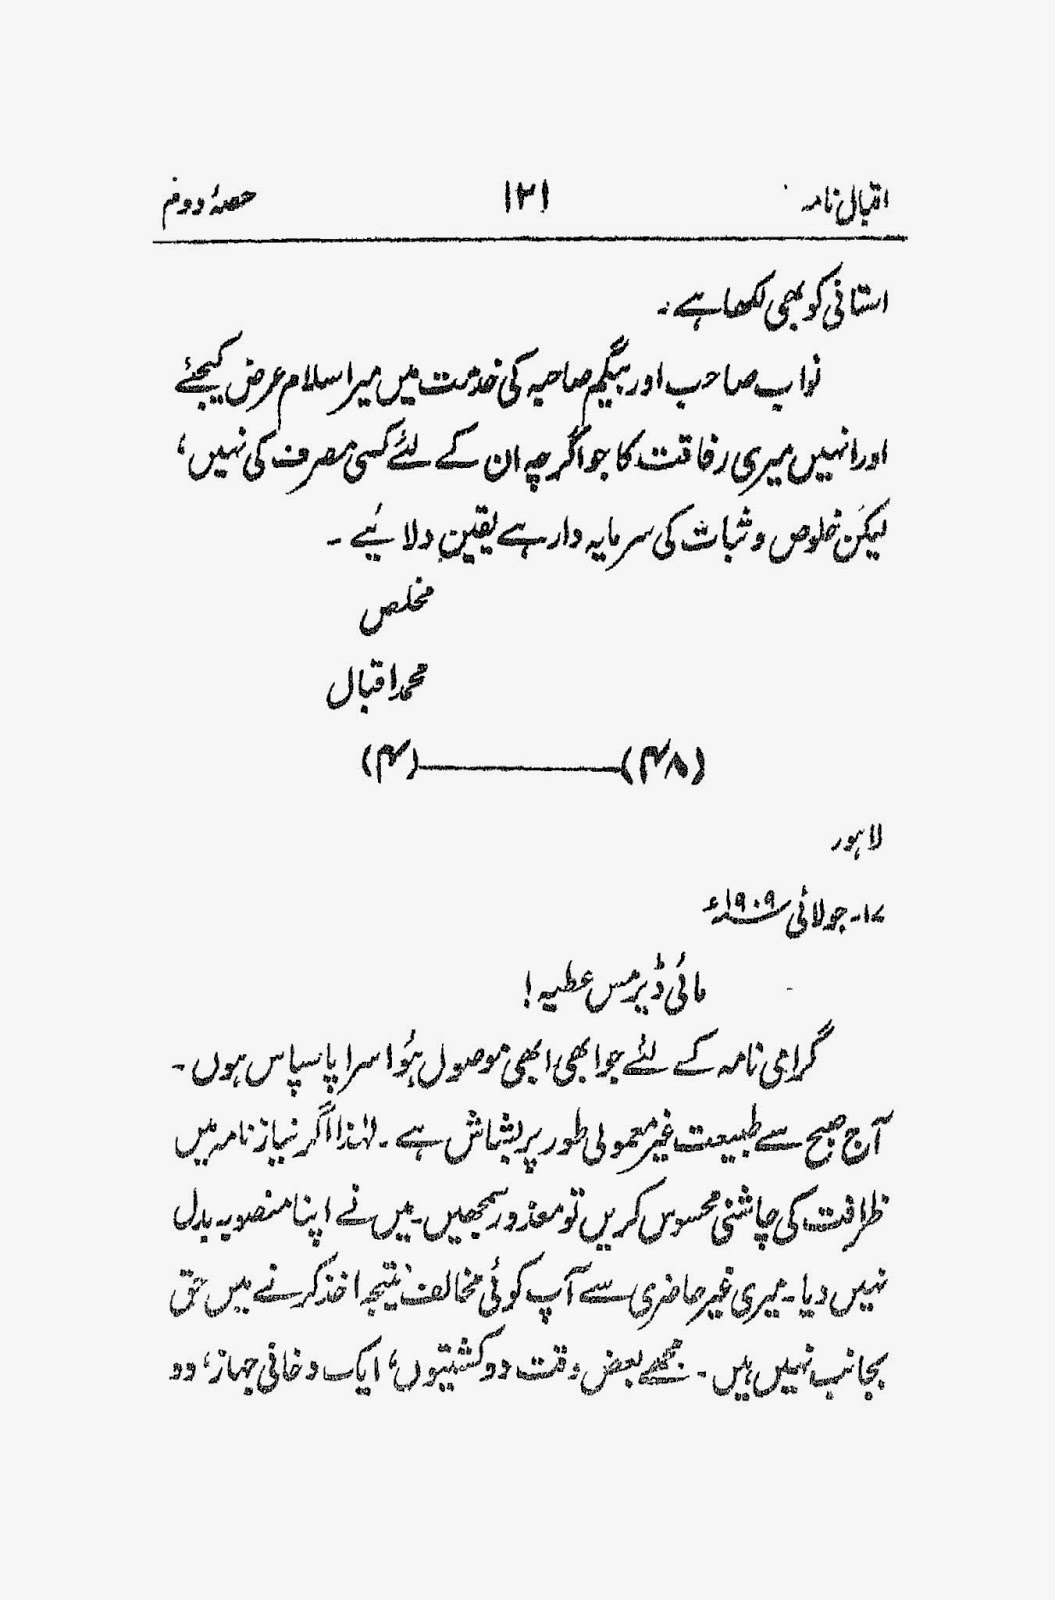 اقبال نامہ ۱۲۱ حصۂ دوم
استانی کو بھی لکھا ہے۔
نواب صاحب اور بیگم صاحبہ کی خدمت میں میرا سلام عرض کیجئے
اور انہیں میری رفاقت کا جو اگرچہ ان کے لئے کسی مصرف کی نہیں،
لیکن خلوص و ثبات کی سرمایہ دار ہے یقین دلائیے ۔
مخلص
محمد اقبال
(۴۸)ــــــــــــ(۴)
لاہور
۱۷۔ جولائی ۱۹۰۹ء
مائی ڈیر مس عطیہ !
گرامی نامہ کے لئے جو ابھی ابھی موصول ہُوا سراپا سپاس ہوں ۔
آج صبح سے طبیعت غیر معمولی طور پر بشاش ہے ۔ لہٰذا اگر نیاز نامہ میں
ظرافت کی چاشنی محسوس کریں تو معذور سمجھیں۔ میں نے اپنا منصوبہ بدل
نہیں دیا۔ میری غیر حاضری سے آپ کوئی مخالف نتیجہ اخذ کرنے میں حق
بجانب نہیں ہیں ۔ مجھے بعض وقت دو کشتیوں، ایک دخانی جہاز، دو